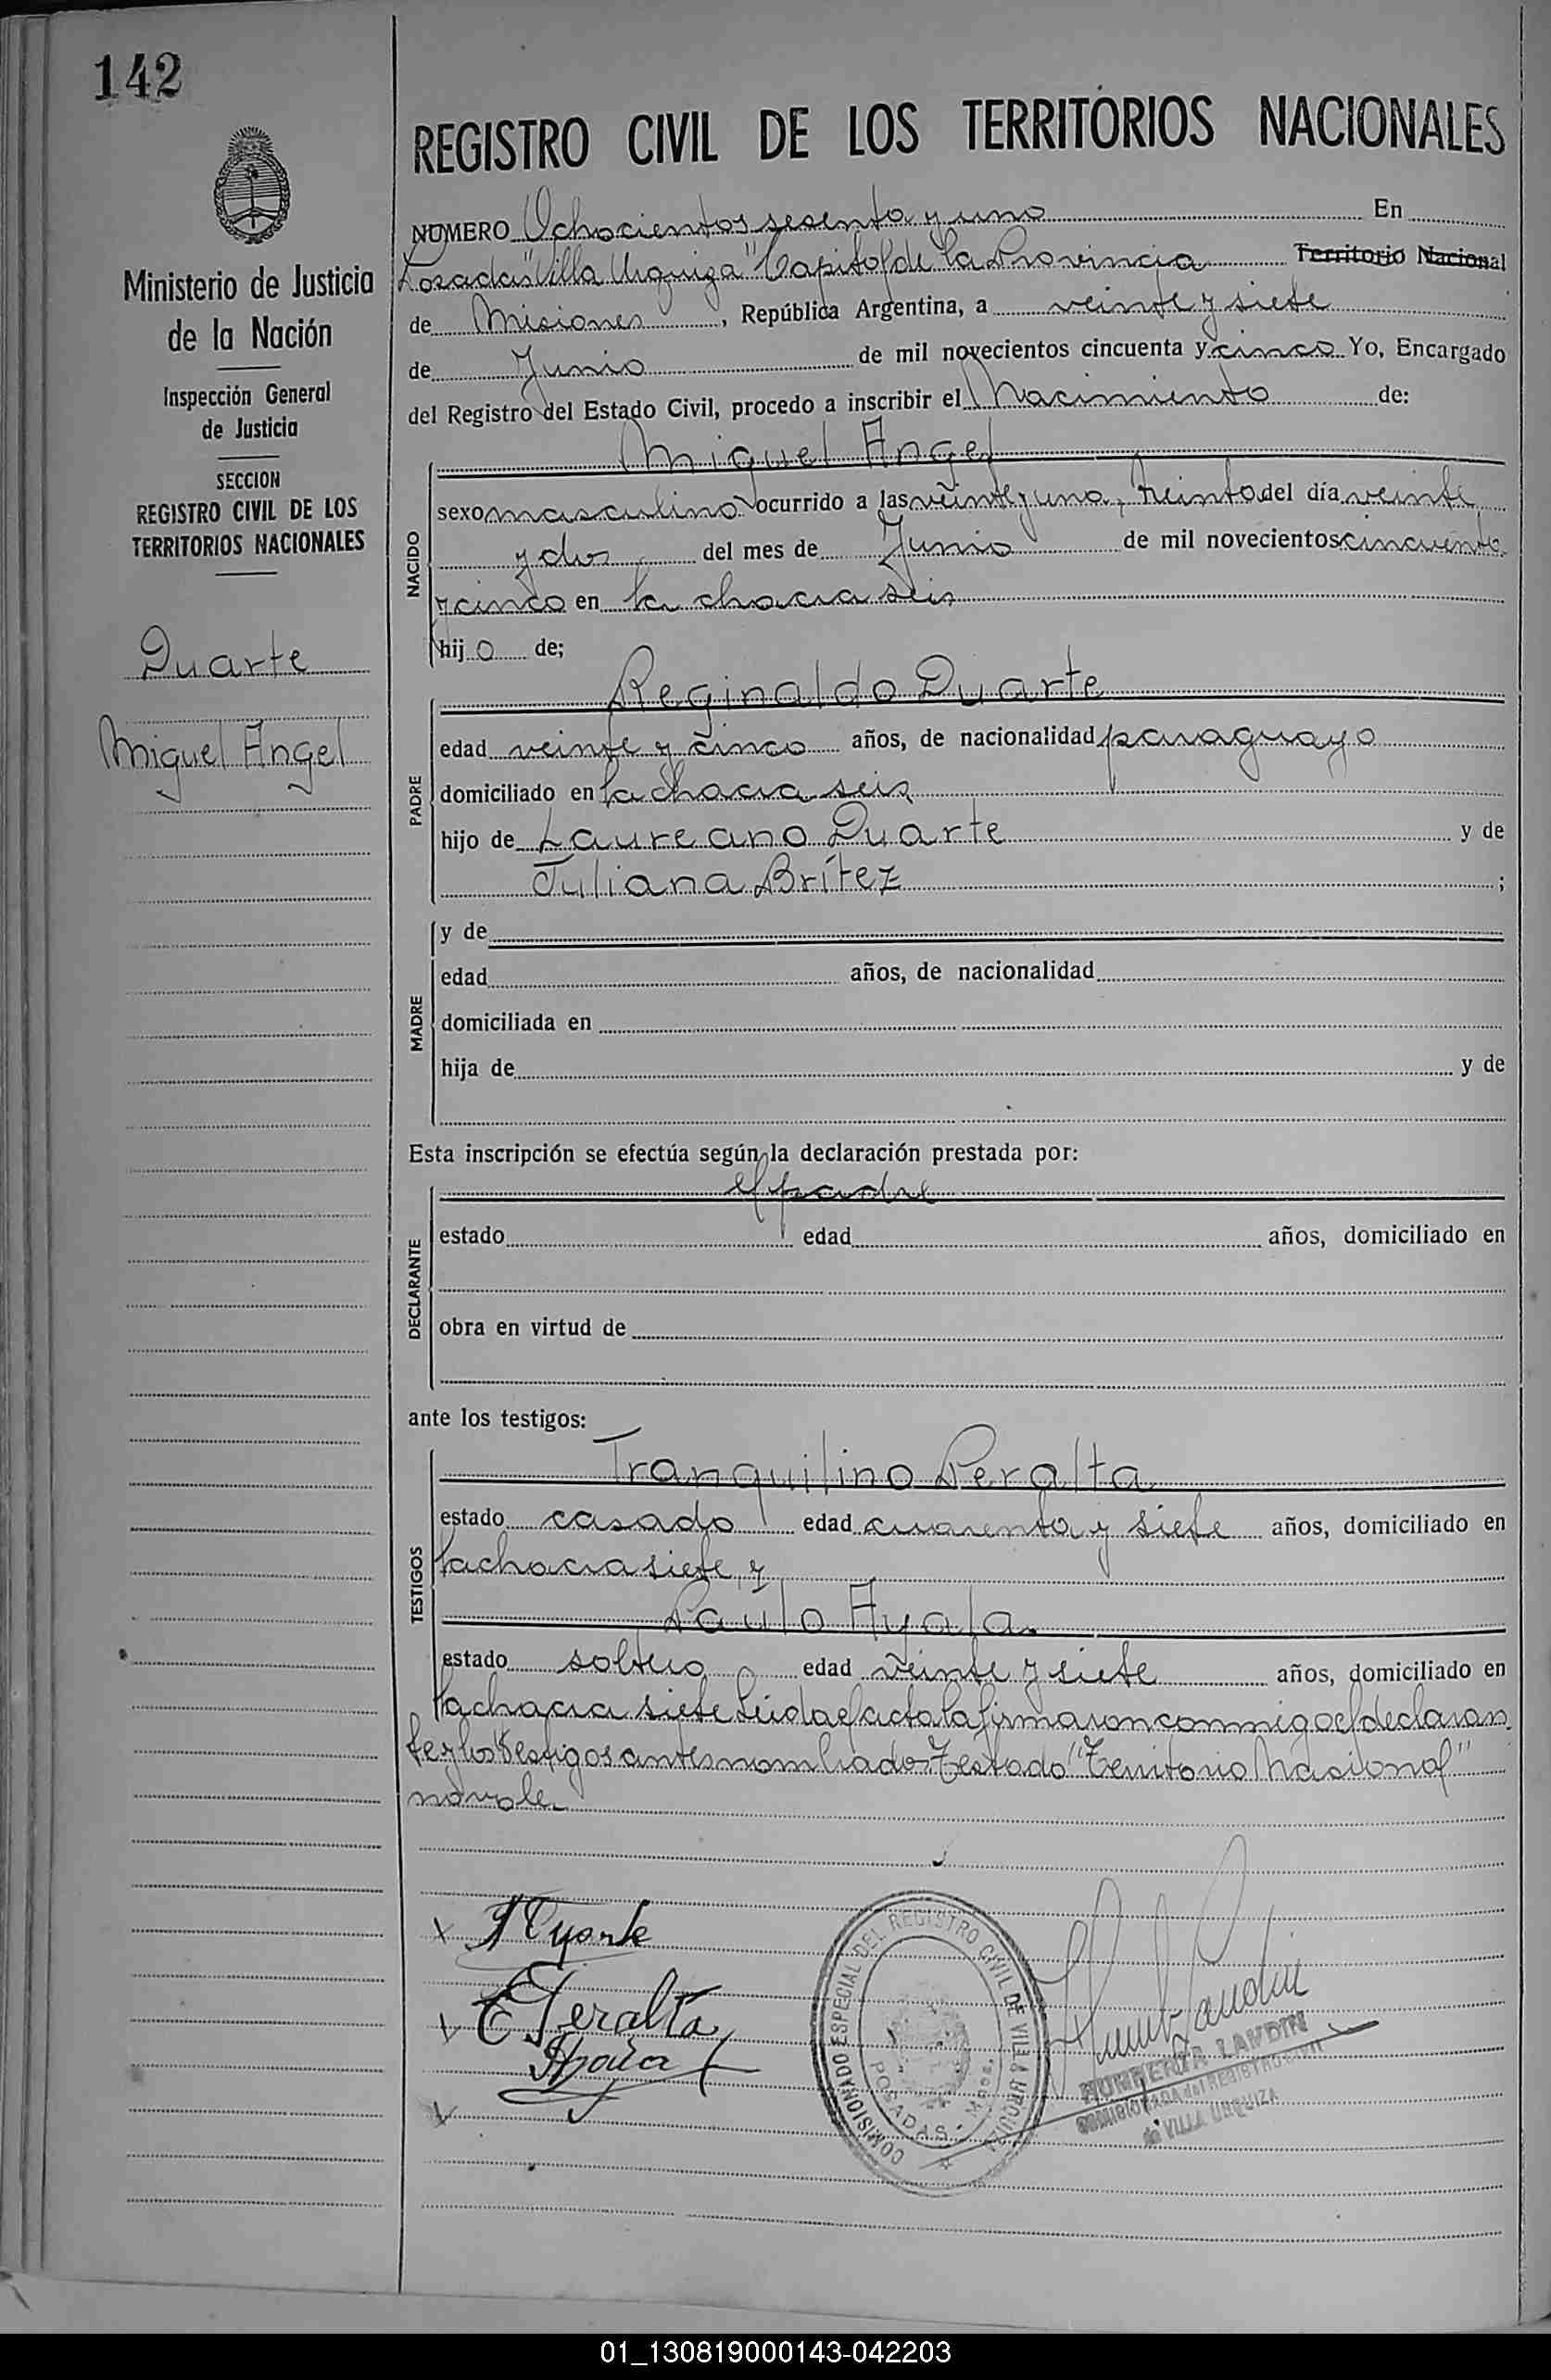 142
REGISTRO CIVIL DE LOS TERRITORIOS NACIONALES
Ministerio de Justicia
de la Nación
Inspección General
de Justicia
SECCION
REGISTRO CIVIL DE LOS
TERRITORIOS NACIONALES
Duarte
Miguel Angel
NUMERO Ochocientos sesenta y uno En
Posadas "Villa Urquiza" Capital de la Provincia Territorio Nacional
de Misiones, República Argentina, a veinte y siete
de Junio de mil novecientos cincuenta y cinco Yo, Encargado
del Registro del Estado Civil, procedo a inscribir el Nacimiento de:
NACIDO
Miguel Angel
sexo masculino ocurrido a las veinte y una, treinta del día veinte
y dos del mes de Junio de mil novecientos cincuenta
y cinco en la chacra seis
hijo de;
PADRE
Reginaldo Duarte
edad veinte y cinco años, de nacionalidad paraguayo
domiciliado en la chacra seis
hijo de Laureano Duarte y de
Juliana Brítez ;
MADRE
y de
edad años, de nacionalidad
domiciliada en
hija de y de
Esta inscripción se efectúa según la declaración prestada por:
DECLARANTE
el padre
estado edad años, domiciliado en
obra en virtud de
ante los testigos:
TESTIGOS
Tranquilino Peralta
estado casado edad cuarenta y siete años, domiciliado en
la chacra siete y
Paulo Ayala
estado soltero edad veinte y siete años, domiciliado en
la chacra siete Leída el acta la firmaron conmigo el declaran
te y los testigos antes nombrado Testado "Territorio Nacional"
no vale
Peralta
COMISIONADO ESPECIAL DEL REGISTRO CIVIL DE VILLA URQUIZA
POSADAS - Mnes.
LANDIN
COMISIONADA del REGISTRO CIVIL
de VILLA URQUIZA
01_130819000143-042203